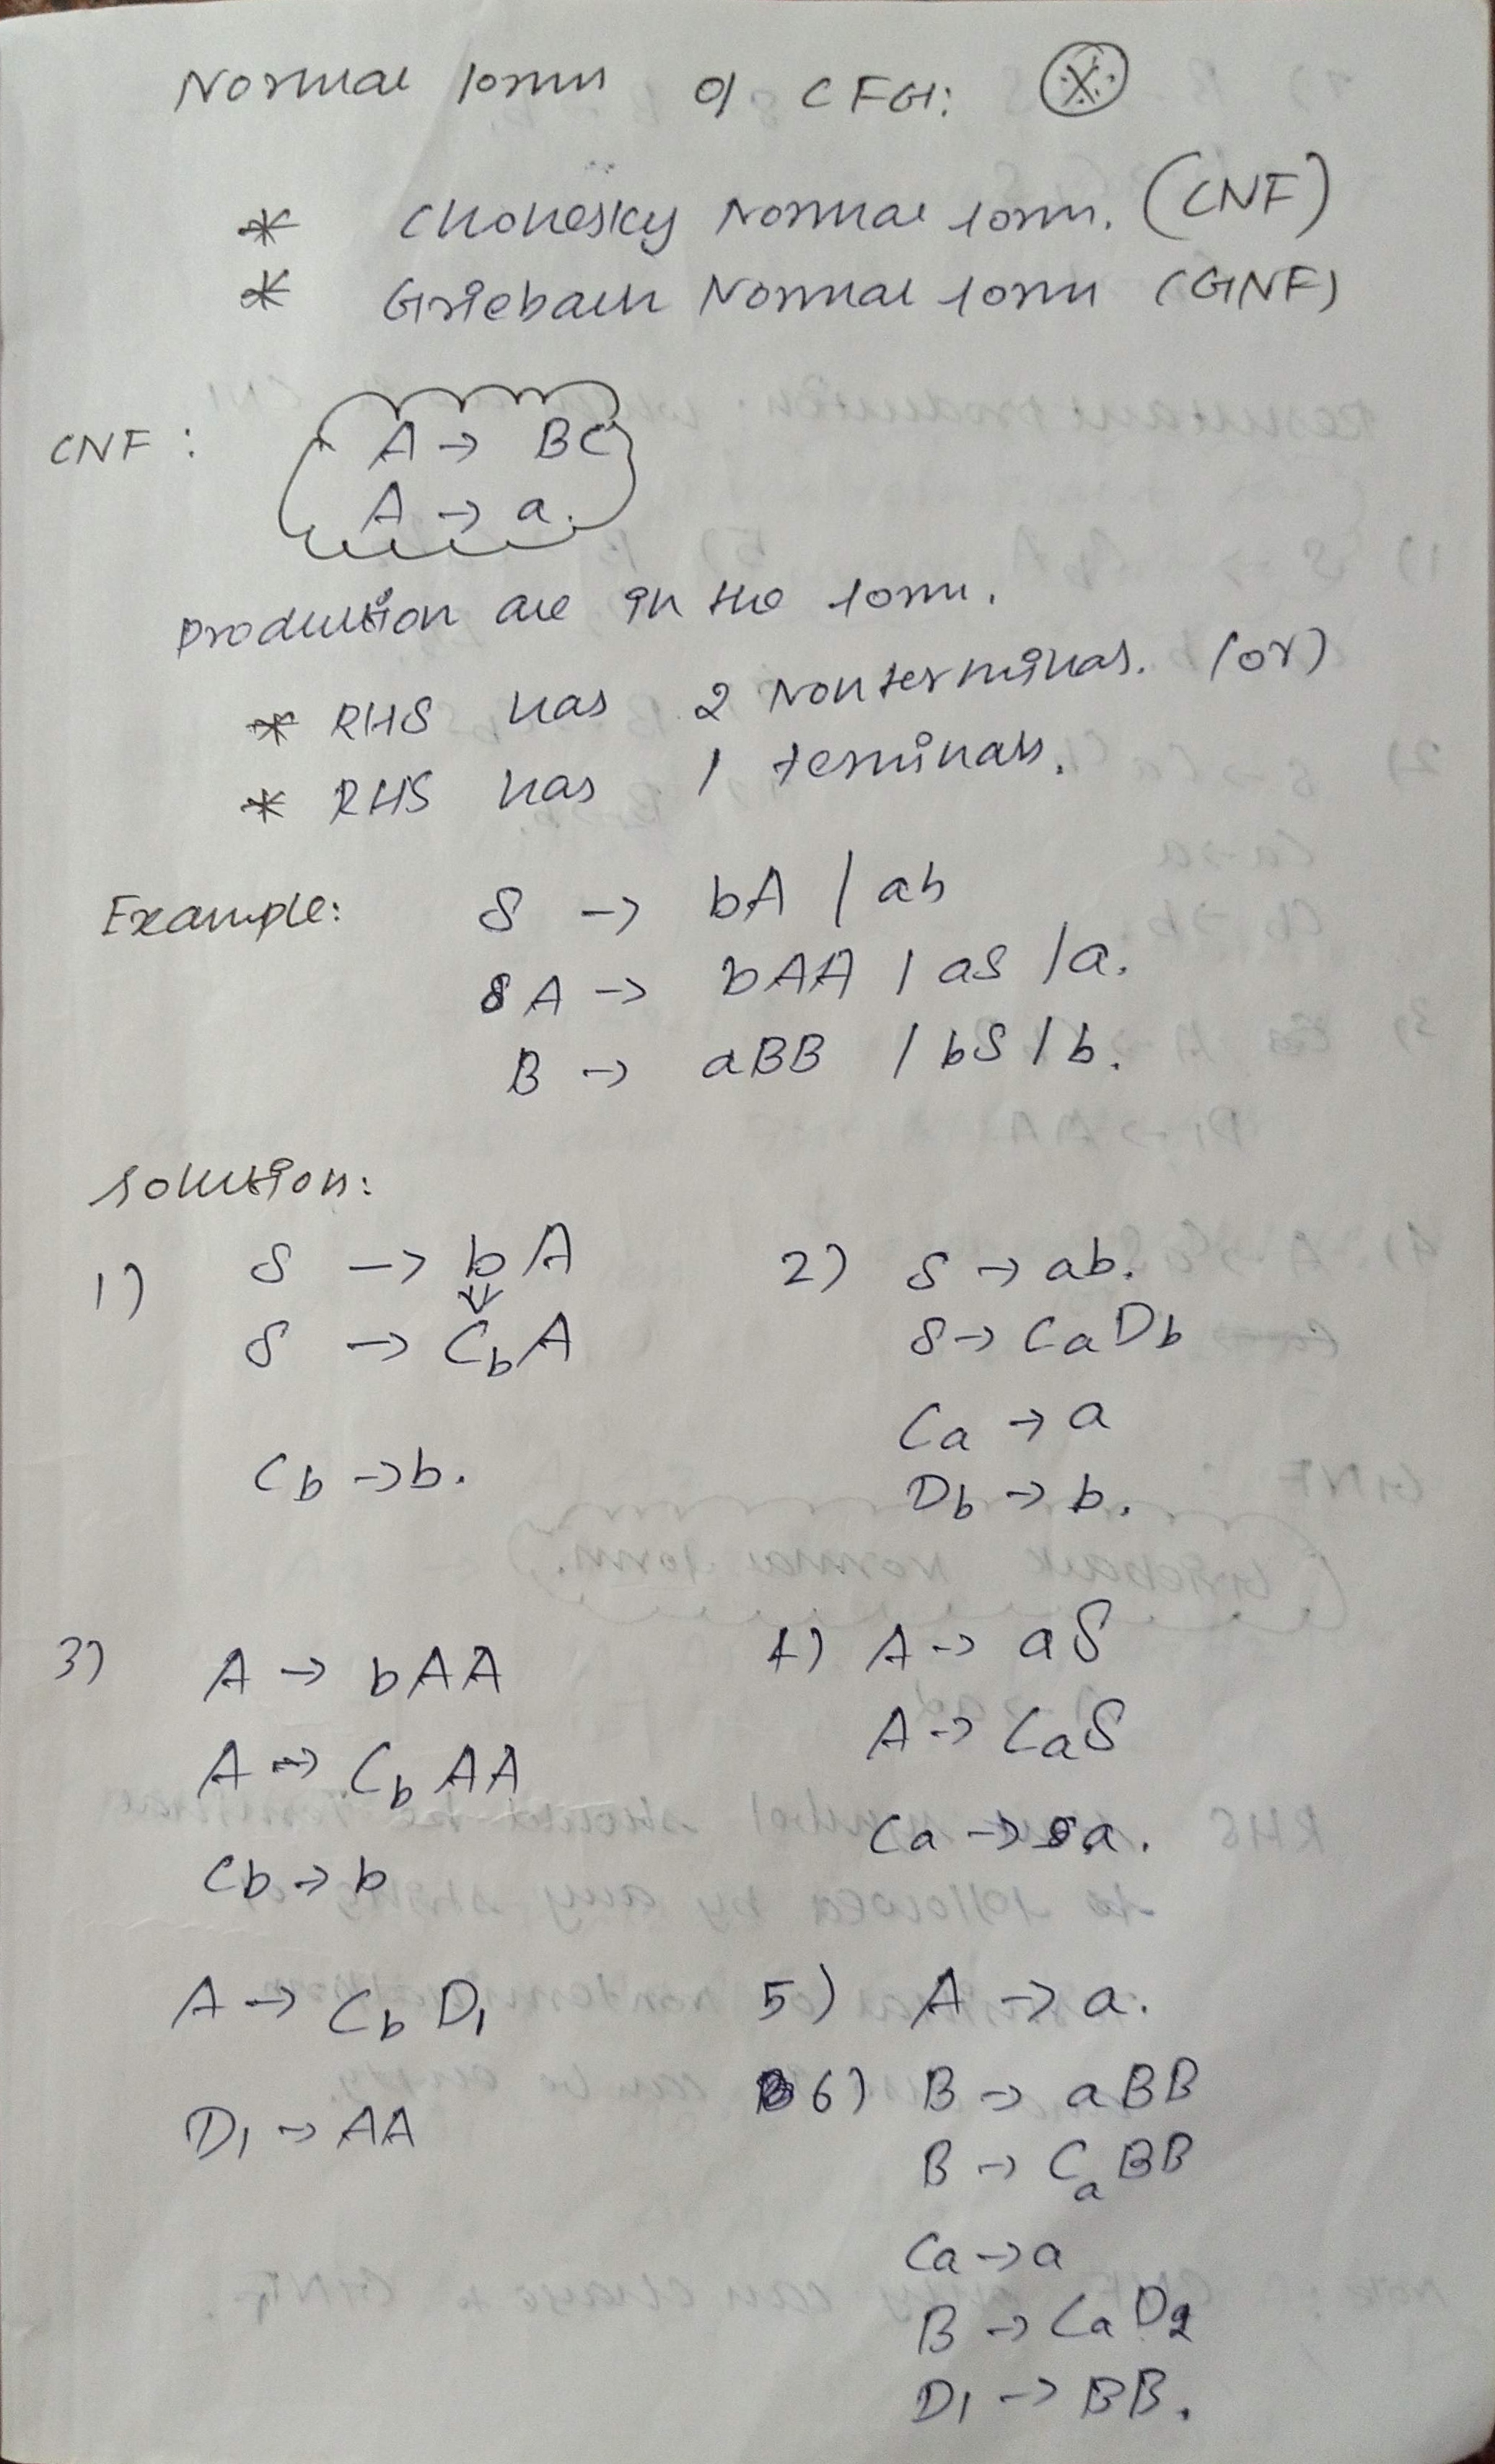 Normal form of CFG:
* Chomesky Normal form. (CNF)
* Griebach Normal form (GNF)
CNF : A → BC
A → a.
Production are in the form.
* RHS has 2 Nonterminas. (or)
* RHS has 1 terminals.
Example: S → bA | ab
A → bAA | aS | a.
B → aBB | bS | b.
Solution:
1) S → bA
S → CbA
Cb → b.
2) S → ab.
S → CaDb
Ca → a
Db → b.
3) A → bAA
A → CbAA
Cb → b
A → CbD1
D1 → AA
4) A → aS
A → CaS
Ca → a.
5) A → a.
6) B → aBB
B → CaBB
Ca → a
B → CaD2
D1 → BB.